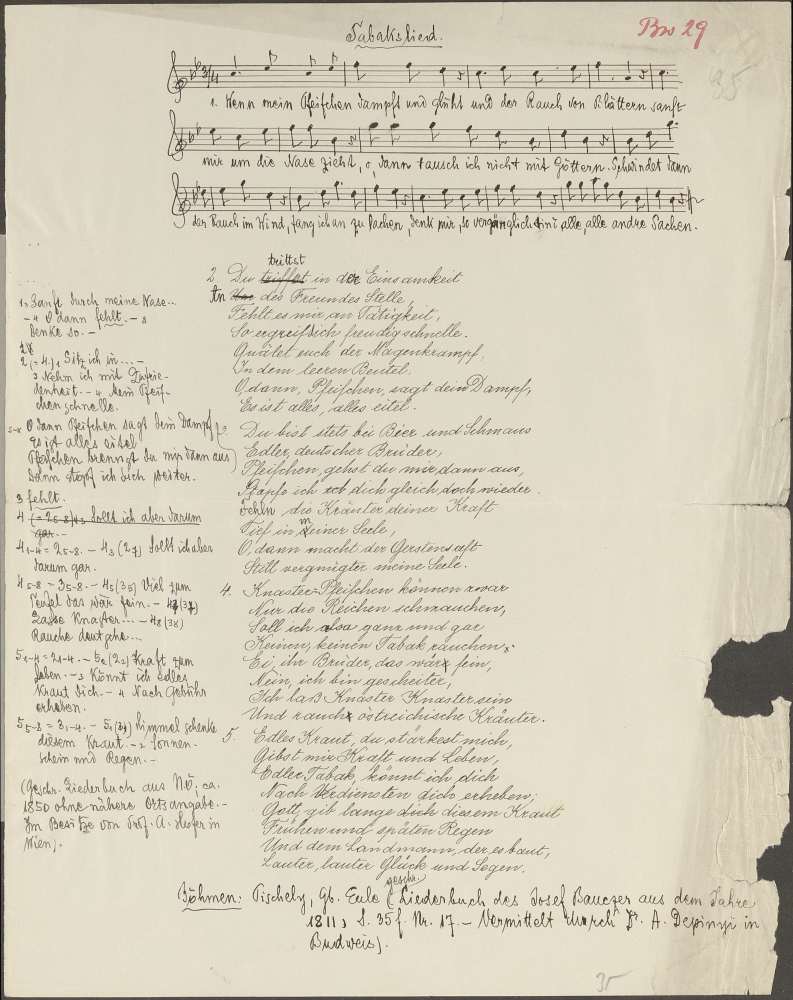 Tabakslied.
Bw 29
35
3/4
1. Wenn mein Pfeifchen dampft und glüht und der Rauch von Blättern sanft
mir um die Nase zieht, o, dann tausch ich nicht mit Göttern. Schwindet dann
der Rauch im Wind, fang ich an zu lachen, denk mir, so vergänglich sind alle, alle andre Sachen.
trittst
2. Du triffst in der Einsamkeit
An des Freundes Stelle,
Fehlt es mir an Tätigkeit,
So ergreif dich freudig schnelle.
Quälet euch der Magenkrampf,
In dem leeren Beutel.
O, dann, Pfeifchen, sagt dein Dampf,
Es ist alles, alles eitel.
3. Du bist stets bei Bier und Schmaus
Edler, deutscher Bruder,
Pfeifchen, gehst du mir dann aus,
Stopfe ich dich gleich doch wieder.
die Kräuter deiner Kraft
Tief in meiner Seele,
O, dann macht der Gerstensaft
Still vergnügter meine Seele.
4. Knaster-Pfeifchen können zwar
Nur die Reichen schmauchen,
Soll ich also ganz und gar
Keinen, keinen Tabak rauchen,
Ei, ihr Brüder, das wär fein,
Nein, ich bin gescheiter,
Ich laß Knaster Knaster sein
Und rauch östreichische Kräuter.
5. Edles Kraut, du stärkest mich,
Gibst mir Kraft und Leben,
Edler Tabak, könnt ich dich
Nach Verdiensten dich erheben;
Gott, gib lange diesem Kraut
Frühen und späten Regen
Und dem Landmann, der es baut,
Lauter, lauter Glück und Segen.
1, Sanft durch meine Nase...
- 4 O dann fehlt. - 3
Denke so. -
2, 1-4 = 4, 1 Sitz ich in ... -
3 Nehm ich mit Zufrie-
denheit. - 4 Mein Pfeif-
chen schnelle.
5-8 O dann Pfeifchen sagt dein Dampf
Es ist alles eitel
Pfeifchen brennst du mir dann aus
Dann stopf ich dich weiter.
3 fehlt.
4 (= 2 5-8) 43 Sollt ich aber darum
gar. -
4 1-4 = 2 5-8. - 43 (27) Sollt ich aber
darum gar.
4 5-8 = 3 5-8. - 45 (35) Viel zum
Teufel das wär fein. - 47 (37)
Lasse Knaster... - 48 (38)
Rauche deutsche...
5 1-4 = 2 1-4. - 52 (22) Kraft zum
Leben. - 3 Könnt ich edles
Kraut dich. - 4 Nach Gebühr
erheben.
5 5-8 = 3 1-4. - 55 (31) Himmel schenke
diesem Kraut. - 2 Sonnen-
schein und Regen. -
(Geschr. Liederbuch aus NÖ, ca.
1850 ohne nähere Ortsangabe. -
Im Besitze von Prof. A. Hofer in
Wien).
Böhmen: Tischely, Gb. Eule (geschr. Liederbuch des Josef Bauczer aus dem Jahre
1811, S. 35 f. Nr. 17. - Vermittelt durch Dr. A. Depinyi in
Budweis).
35